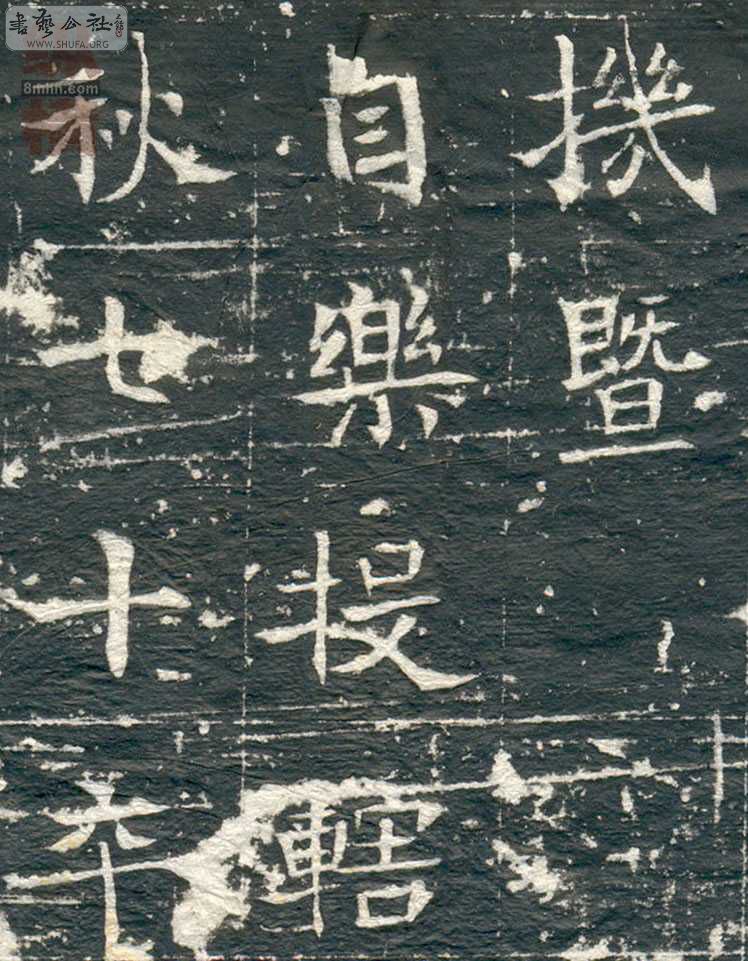 書藝公社
WWW.SHUFA.ORG
8mhh.com
機暨
自樂投轄
秋七十